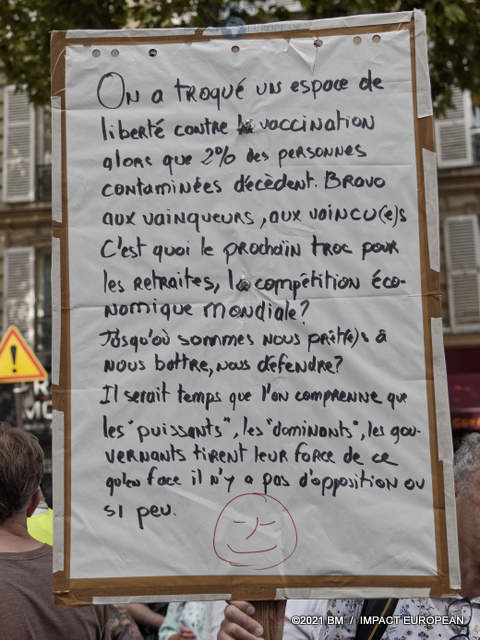 On a troqué un espace de
liberté contre la vaccination
alors que 2% des personnes
contaminées décèdent. Bravo
aux vainqueurs, aux vaincu(e)s
C'est quoi le prochain troc pour
les retraites, la compétition éco-
nomique mondiale?
Jusqu'où sommes nous prêt(e)s à
nous battre, nous défendre?
Il serait temps que l'on comprenne que
les "puissants", les "dominants", les gou-
vernants tirent leur force de ce
qu'en face il n'y a pas d'opposition ou
si peu.
©2021 BM / IMPACT EUROPEAN